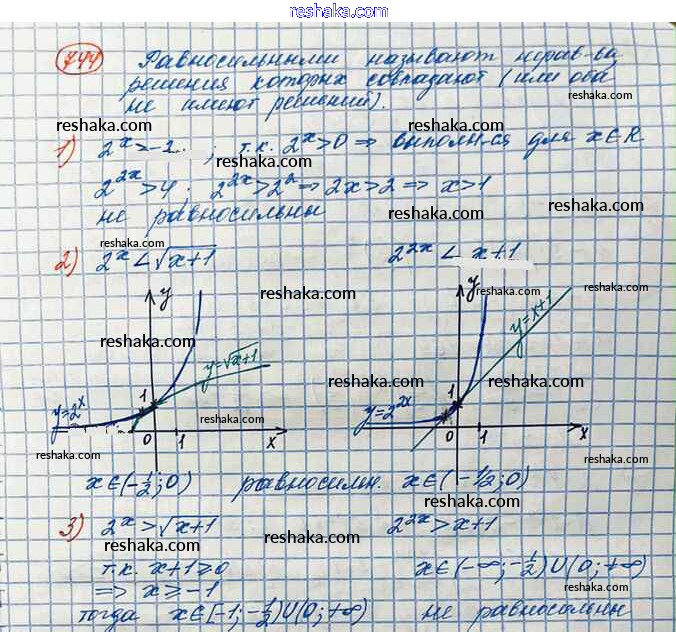 reshaka.com
744 Равносильными называют нерав-ва
решения которых совпадают (или оба
не имеют решений).
reshaka.com
reshaka.com
1) 2^x > -2 ; т.к. 2^x > 0 ⇒ выполн-ся для x∈R
reshaka.com
reshaka.com
2^2x > 4 ; 2^2x > 2^2 ⇒ 2x > 2 ⇒ x > 1
не равносильны
reshaka.com
reshaka.com
reshaka.com
2) 2^x < √x+1 2^2x < x+1
reshaka.com
reshaka.com
reshaka.com
y y
reshaka.com
y=√x+1 y=x+1
reshaka.com
1 1
y=2^x y=2^2x
reshaka.com
reshaka.com
0 1 x 0 1 x
reshaka.com
reshaka.com
reshaka.com
x∈(-1/2; 0) равносильн. x∈(-1/2; 0)
reshaka.com
reshaka.com
3) 2^x > √x+1 2^2x > x+1
reshaka.com
т.к. x+1 ≥ 0 x∈(-∞; -1/2)∪(0; +∞)
reshaka.com
⇒ x ≥ -1
reshaka.com
reshaka.com
тогда x∈[-1; -1/2)∪(0; +∞) не равносильны